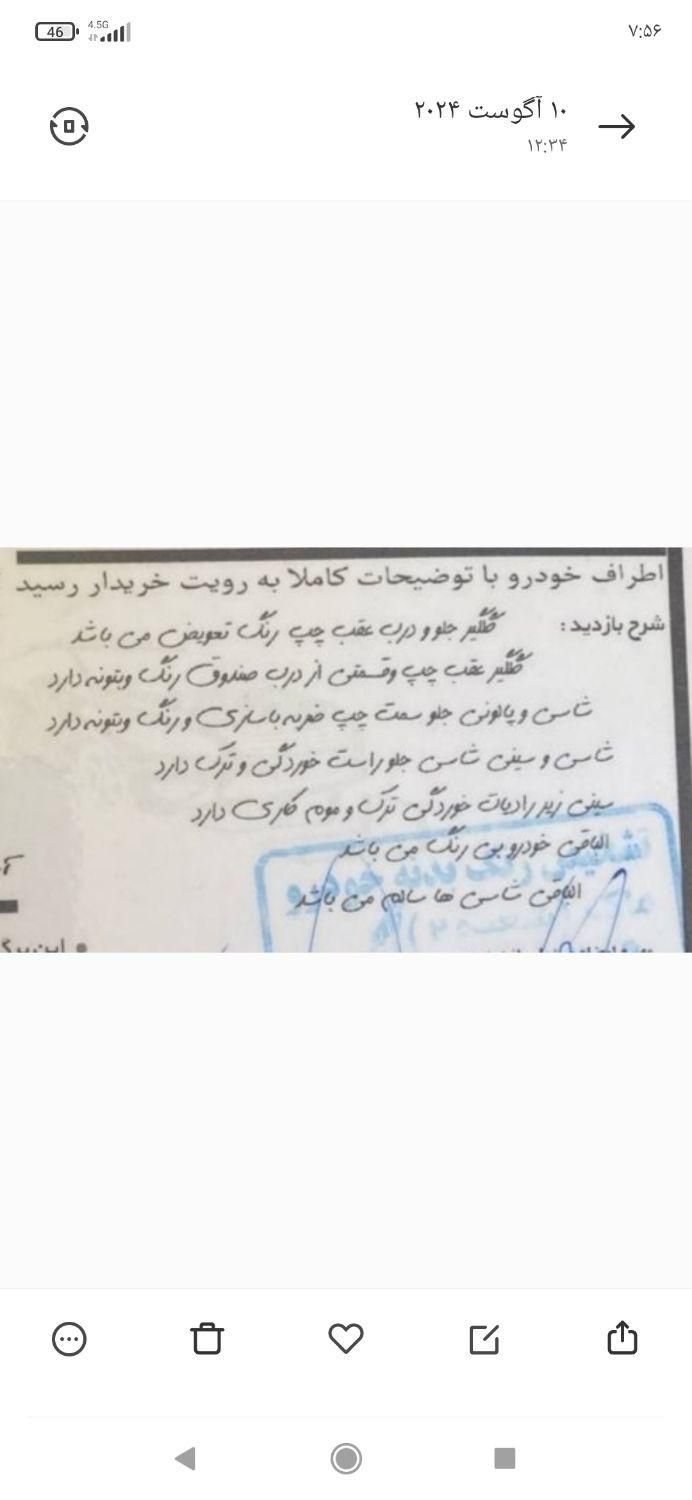 ۷:۵۶
4.5G
46
۱۰ آگوست ۲۰۲۴
۱۲:۳۴
اطراف خودرو با توضیحات کاملا به رویت خریدار رسید
شرح بازدید: گلگیر جلو و درب عقب چپ رنگ تعویض می باشد
گلگیر عقب چپ و قسمتی از درب صندوق رنگ و بتونه دارد
شاسی و پالونی جلو سمت چپ ضربه بازسازی و رنگ و بتونه دارد
شاسی و سینی شاسی جلو راست خوردگی و ترک دارد
سینی زیر رادیات خوردگی ترک و موم کاری دارد
الباقی خودرو بی رنگ می باشد
الباقی شاسی ها سالم می باشد